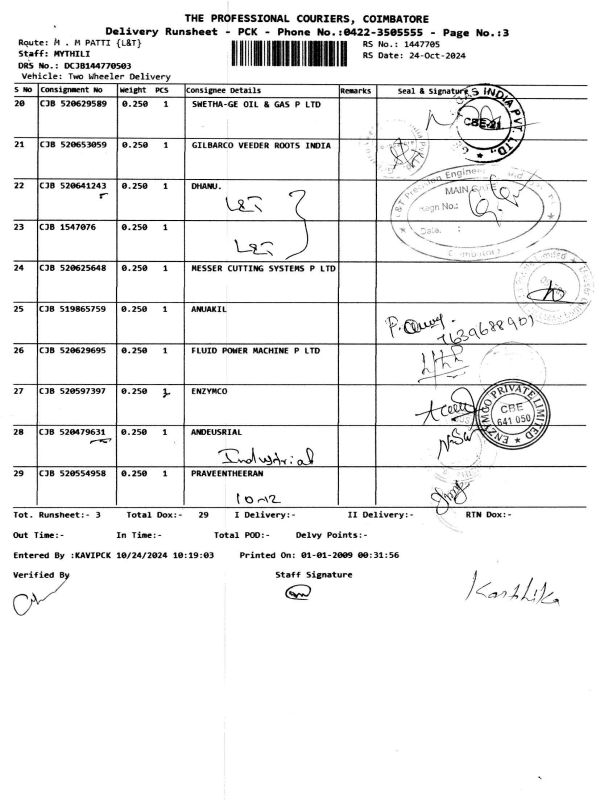 THE PROFESSIONAL COURIERS, COIMBATORE
Delivery Runsheet - PCK - Phone No.:0422-3505555 - Page No.:3
Route: M . M PATTI {L&T}
RS No.: 1447705
Staff: MYTHILI
RS Date: 24-Oct-2024
DRS No.: DCJB144770503
Vehicle: Two Wheeler Delivery
S No Consignment No Weight PCS Consignee Details Remarks Seal & Signature
20 CJB 520629589 0.250 1 SWETHA-GE OIL & GAS P LTD
GAS INDIA PVT. LTD.,
CBE-21
21 CJB 520653059 0.250 1 GILBARCO VEEDER ROOTS INDIA
22 CJB 520641243 0.250 1 DHANU.
L&T
L&T Precision Engineer
MAIN GATE
Regn No.:
23 CJB 1547076 0.250 1
L&T
Date. :
24 CJB 520625648 0.250 1 MESSER CUTTING SYSTEMS P LTD
25 CJB 519865759 0.250 1 ANUAKIL
7639688901
26 CJB 520629695 0.250 1 FLUID POWER MACHINE P LTD
27 CJB 520597397 0.250 1 ENZYMCO
ENZYMCO PRIVATE LIMITED
CBE
641 050
28 CJB 520479631 0.250 1 ANDEUSRIAL
Industrial
29 CJB 520554958 0.250 1 PRAVEENTHEERAN
10-12
Tot. Runsheet:- 3 Total Dox:- 29 I Delivery:- II Delivery:- RTN Dox:-
Out Time:- In Time:- Total POD:- Delvy Points:-
Entered By :KAVIPCK 10/24/2024 10:19:03 Printed On: 01-01-2009 00:31:56
Verified By Staff Signature
Karthika